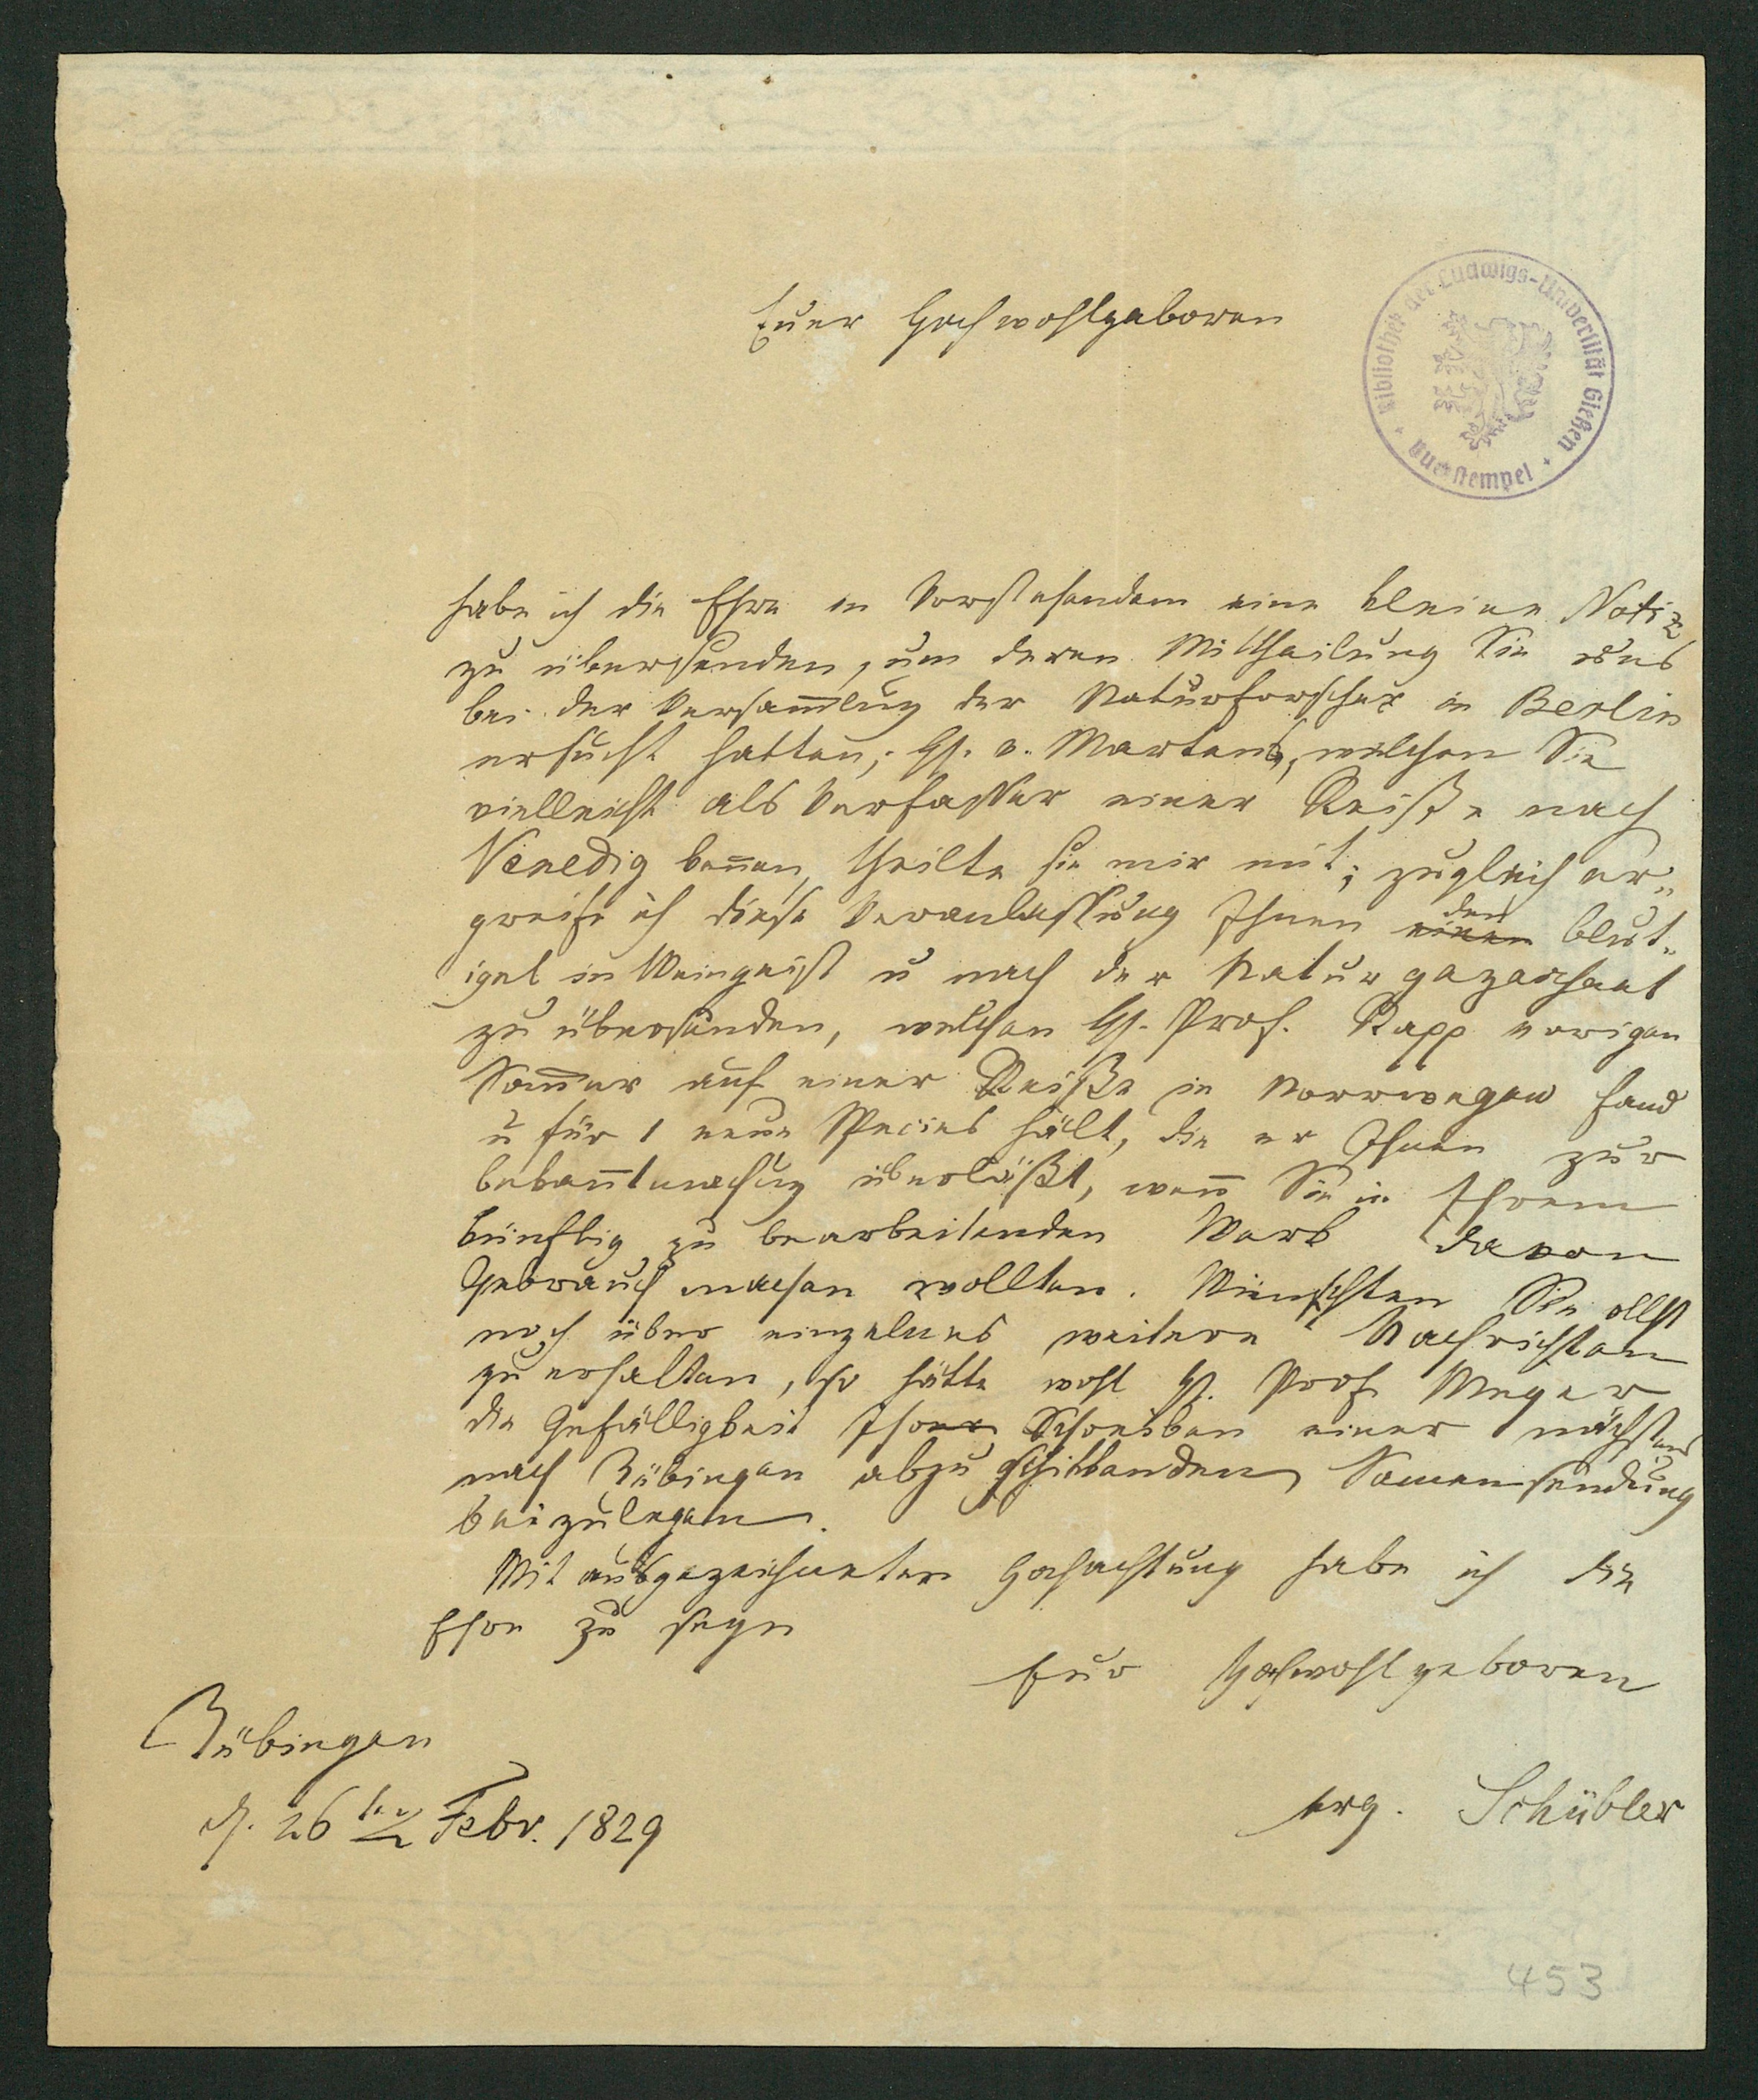 Euer Hochwohlgeboren
Bibliothek der Ludwigs-Universität Gießen
Buchstempel
habe ich die Ehre in Vorstehendem eine kleine Notiz
zu übersenden, um deren Mittheilung Sie uns
bei der Versam̅lug der Naturforscher in Berlin
ersucht hatten; H. v. Martens, welchen Sie
vielleicht als Verfasser einer Reiße nach
Venedig ken̅en, theilte sie mir mit; zugleich er-
greife ich diese Veranlassung Ihnen einen den Blut-
igel in Weingeist u nach der Natur gezeichnet
zu übersenden, welchen H. Prof. Rapp vorigen
Som̅er auf einer Reiße in Norrwegen fand
u für 1 neue Species hält, die er Ihnen zur
bekan̅tmachug überläßt, wen̅ Sie in Ihrem
künftig zu bearbeitenden Werk davon
Gebrauch machen wollten. Wünschten Sie
noch über einzelnes weitere Nachrichten
zu erhalten, so hätte wohl H. Prof Meyer
die Gefälligkeit Ihr Schreiben einer nächstens
nach Tübingen abzuschickenden Samensendung
beizulegen.
Mit ausgezeichneter Hochachtung habe ich die
Ehre zu seyn
Eur Hochwohlgeboren
Tübingen
d. 26ten Febr. 1829
erg. Schübler
453